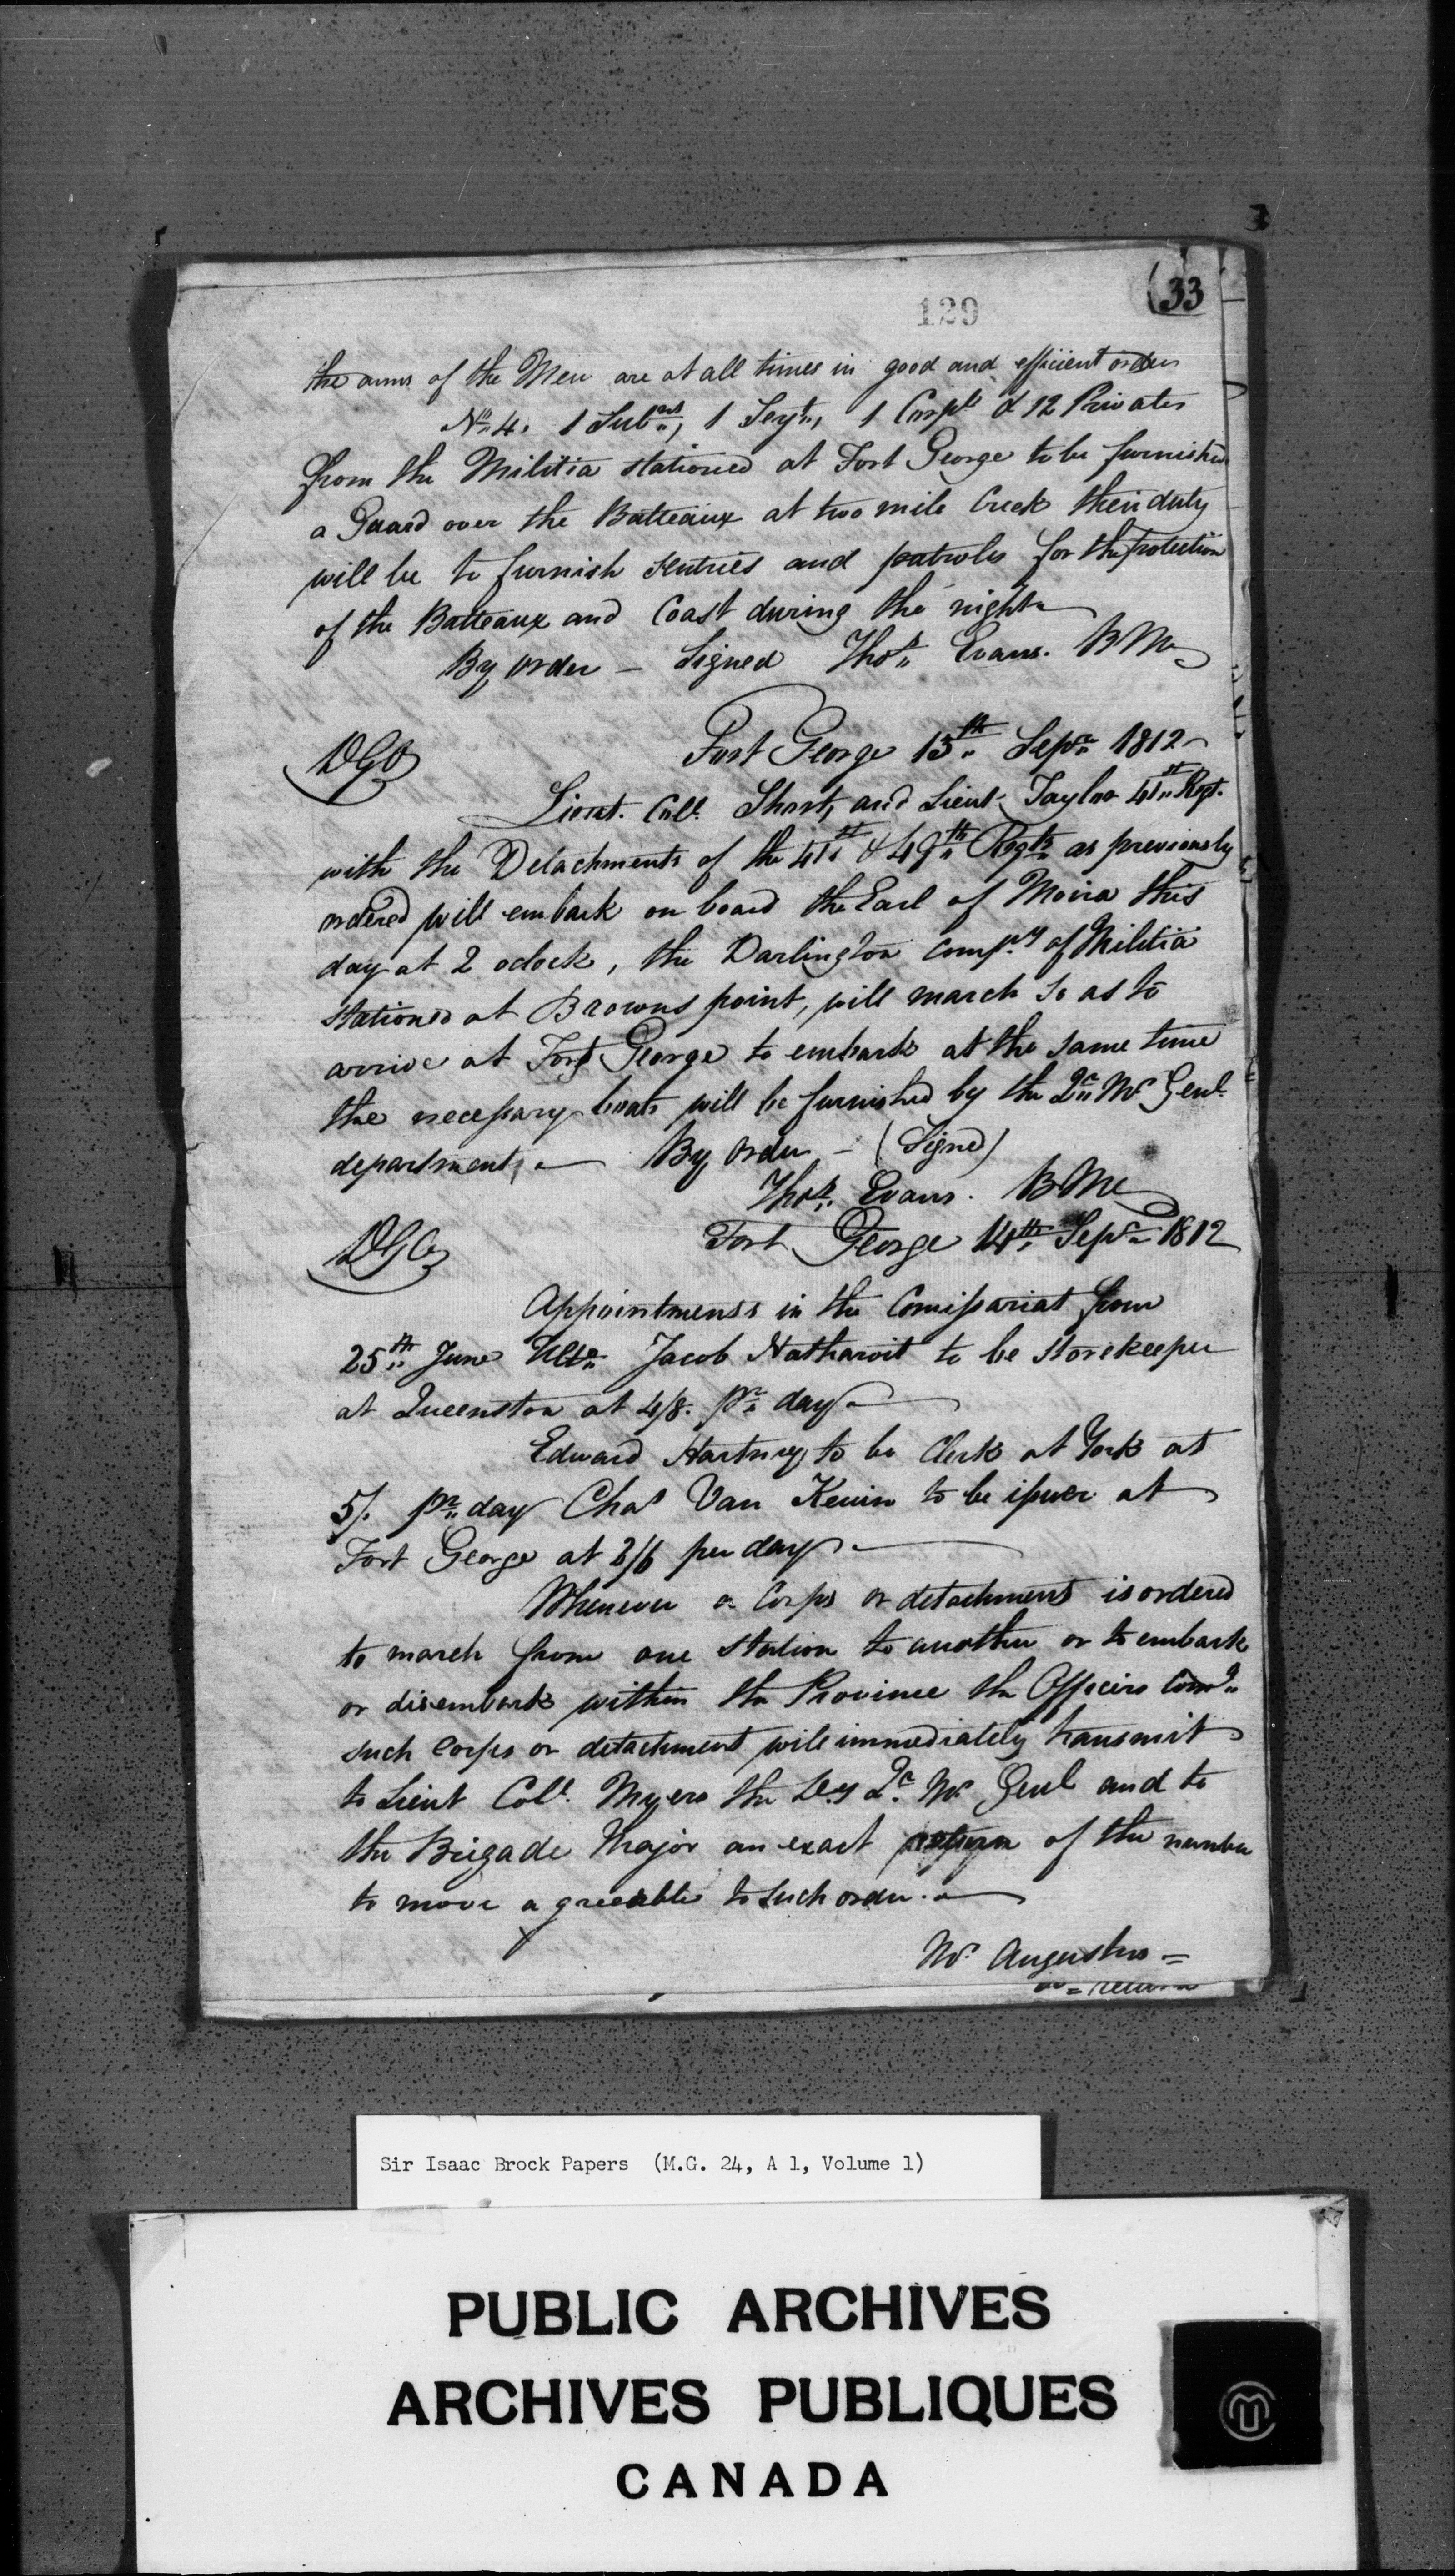 129
(33
the arms of the Men are at all times in good and efficient order
No. 4. 1 Subns, 1 Sergt., 1 Corpl & 12 Privates
from the Militia stationed at Fort George to be furnished
a Guard over the Batteaux at two mile Creek their duty
will be to furnish sentries and patroles for the protection
of the Batteaux and Coast during the night
By order - Signed Thos. Evans. BM
DGO
Fort George 13th Sepr 1812
Lieut. Coll. Short, and Lieut. Taylor 41st Regt.
with the Detachments of the 41st & 49th Regts as previously
ordered will embark on board the Earl of Moira this
day at 2 oclock, the Darlington Compy of Militia
stationed at Browns point, will march so as to
arrive at Fort George to embark at the same time
the necessary boats will be furnished by the Qr Mr Genl
department. By order - (Signed)
Thos. Evans. BM
DGO
Fort George 14th Sepr 1812
Appointments in the Comissariat from
25th June Ulto Jacob to be Storekeeper
at Queenston at 4/8. pr day
Edward Hartney to be Clerk at York at
5/. pr day Chas Van to be issuer at
Fort George at 3/6 per day
Whenever a Corps or detachment is ordered
to march from one station to another or to embark
or disembark within the Province the Officers Comg
such Corps or detachment will immediately transmit
to Lieut Coll. Myers the Dey Qr. Mr Genl and to
the Brigade Major an exact return of the number
to move agreeable to such order.
Mr. Augustus =
= return
Sir Isaac Brock Papers (M.G. 24, A 1, Volume 1)
PUBLIC ARCHIVES
ARCHIVES PUBLIQUES
CANADA